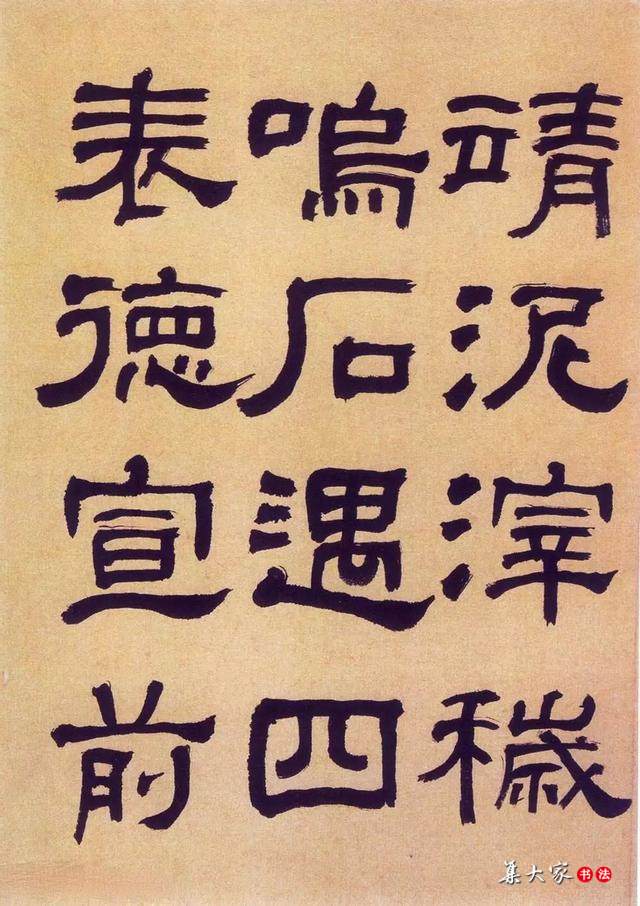 靖泥滓穢
嗚石遇四
表德宣前
集大家书法